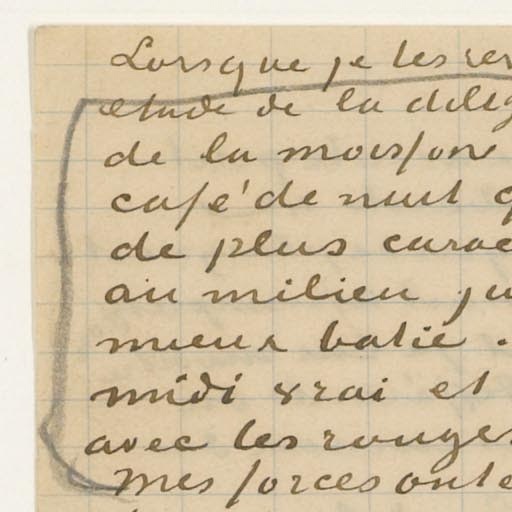 Lorsque je les
étude de la
de la moisson
café de nuit
de plus
au milieu
mieux batie.
midi vrai et
avec les rouges
Mes forces ont